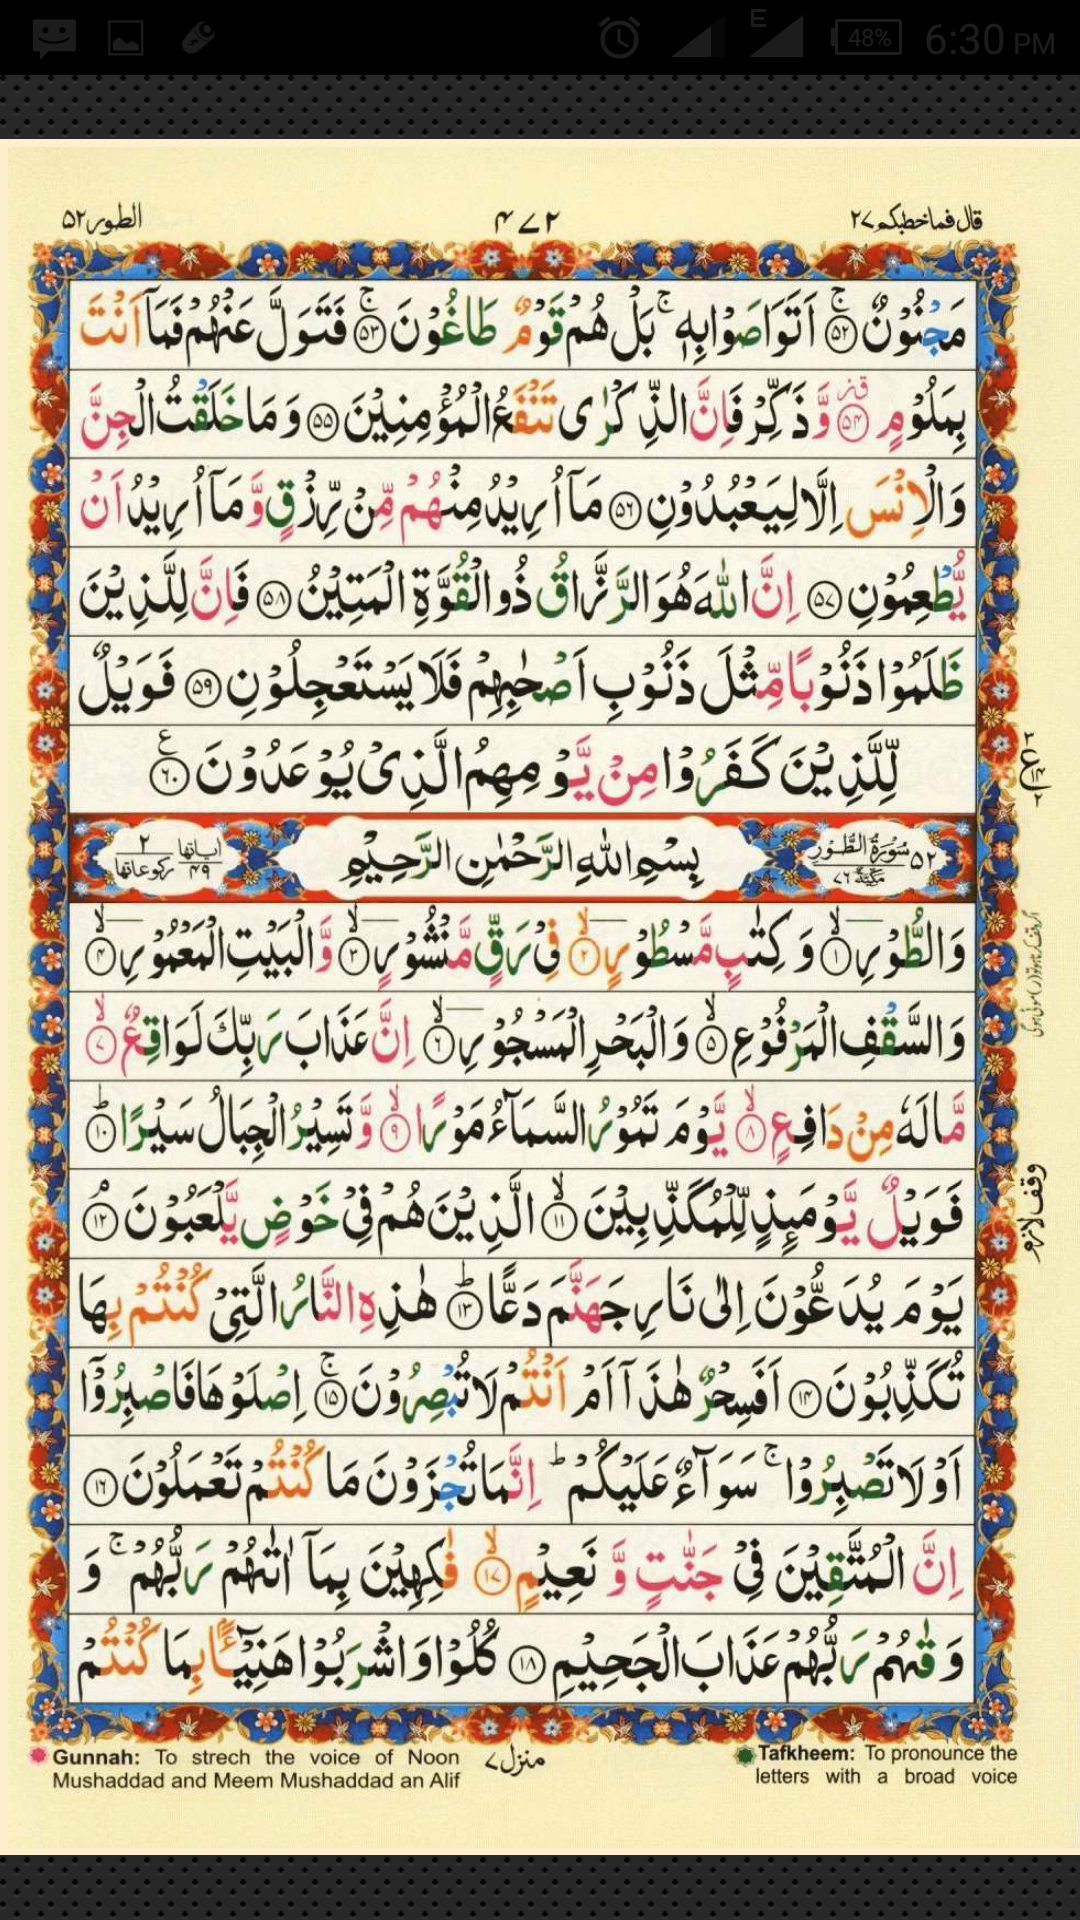 E 48% 6:30 PM
الطور ٥٢ ٤٧٢ قال فما خطبكم ٢٧
مَجْنُوْنٌ ۚ﴿۵۲﴾ اَتَوَاصَوْا بِهٖ ۚ بَلْ هُمْ قَوْمٌ طَاغُوْنَ ۚ﴿۵۳﴾ فَتَوَلَّ عَنْهُمْ فَمَاۤ اَنْتَ
بِمَلُوْمٍ ﴿۵۴﴾ وَّ ذَكِّرْ فَاِنَّ الذِّكْرٰى تَنْفَعُ الْمُؤْمِنِيْنَ ﴿۵۵﴾ وَ مَا خَلَقْتُ الْجِنَّ
وَالْاِنْسَ اِلَّا لِيَعْبُدُوْنِ ﴿۵۶﴾ مَاۤ اُرِيْدُ مِنْهُمْ مِّنْ رِّزْقٍ وَّ مَاۤ اُرِيْدُ اَنْ
يُّطْعِمُوْنِ ﴿۵۷﴾ اِنَّ اللّٰهَ هُوَ الرَّزَّاقُ ذُو الْقُوَّةِ الْمَتِيْنُ ﴿۵۸﴾ فَاِنَّ لِلَّذِيْنَ
ظَلَمُوْا ذَنُوْبًا مِّثْلَ ذَنُوْبِ اَصْحٰبِهِمْ فَلَا يَسْتَعْجِلُوْنِ ﴿۵۹﴾ فَوَيْلٌ
لِّلَّذِيْنَ كَفَرُوْا مِنْ يَّوْمِهِمُ الَّذِىْ يُوْعَدُوْنَ ﴿۶۰﴾ ع
٥٢ سُوْرَةُ الطُّوْرِ مَكِّيَّةٌ ٧٦ بِسْمِ اللّٰهِ الرَّحْمٰنِ الرَّحِيْمِ اٰياتها ٤٩ ركوعاتها ٢
وَالطُّوْرِ ۙ﴿۱﴾ وَ كِتٰبٍ مَّسْطُوْرٍ ۙ﴿۲﴾ فِىْ رَقٍّ مَّنْشُوْرٍ ۙ﴿۳﴾ وَّ الْبَيْتِ الْمَعْمُوْرِ ۙ﴿۴﴾
وَالسَّقْفِ الْمَرْفُوْعِ ۙ﴿۵﴾ وَالْبَحْرِ الْمَسْجُوْرِ ۙ﴿۶﴾ اِنَّ عَذَابَ رَبِّكَ لَوَاقِعٌ ۙ﴿۷﴾
مَّا لَهٗ مِنْ دَافِعٍ ۙ﴿۸﴾ يَّوْمَ تَمُوْرُ السَّمَآءُ مَوْرًا ۙ﴿۹﴾ وَّ تَسِيْرُ الْجِبَالُ سَيْرًا ؕ﴿۱۰﴾
فَوَيْلٌ يَّوْمَئِذٍ لِّلْمُكَذِّبِيْنَ ۙ﴿۱۱﴾ الَّذِيْنَ هُمْ فِىْ خَوْضٍ يَّلْعَبُوْنَ ۘ﴿۱۲﴾ وقف لازم
يَوْمَ يُدَعُّوْنَ اِلٰى نَارِ جَهَنَّمَ دَعًّا ؕ﴿۱۳﴾ هٰذِهِ النَّارُ الَّتِىْ كُنْتُمْ بِهَا
تُكَذِّبُوْنَ ﴿۱۴﴾ اَفَسِحْرٌ هٰذَاۤ اَمْ اَنْتُمْ لَا تُبْصِرُوْنَ ۚ﴿۱۵﴾ اِصْلَوْهَا فَاصْبِرُوْۤا
اَوْ لَا تَصْبِرُوْا ۚ سَوَآءٌ عَلَيْكُمْ ؕ اِنَّمَا تُجْزَوْنَ مَا كُنْتُمْ تَعْمَلُوْنَ ﴿۱۶﴾
اِنَّ الْمُتَّقِيْنَ فِىْ جَنّٰتٍ وَّ نَعِيْمٍ ۙ﴿۱۷﴾ فٰكِهِيْنَ بِمَاۤ اٰتٰىهُمْ رَبُّهُمْ ۚ وَ
وَقٰىهُمْ رَبُّهُمْ عَذَابَ الْجَحِيْمِ ﴿۱۸﴾ كُلُوْا وَاشْرَبُوْا هَنِيْٓـًٔۢا بِمَا كُنْتُمْ
Gunnah: To strech the voice of Noon
Mushaddad and Meem Mushaddad an Alif
منزل ٧
Tafkheem: To pronounce the
letters with a broad voice